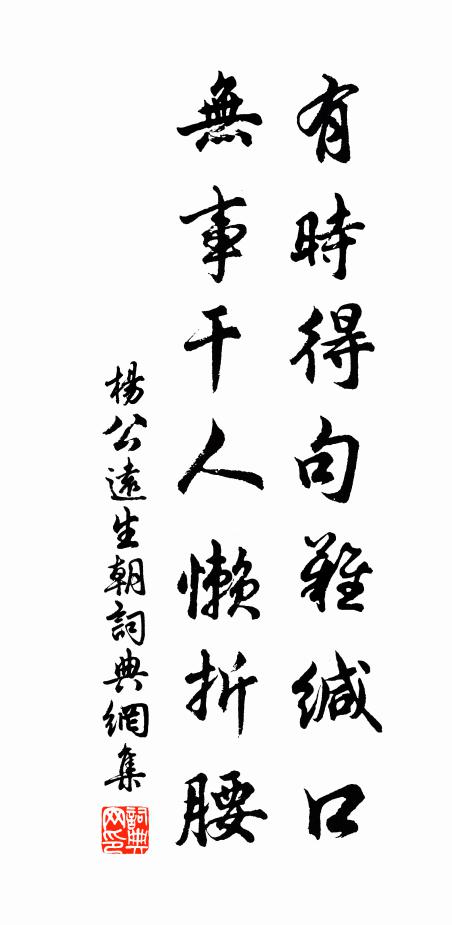 有時得句難緘口
無事干人懶折腰
楊公遠生朝詞典網集
詞典網印